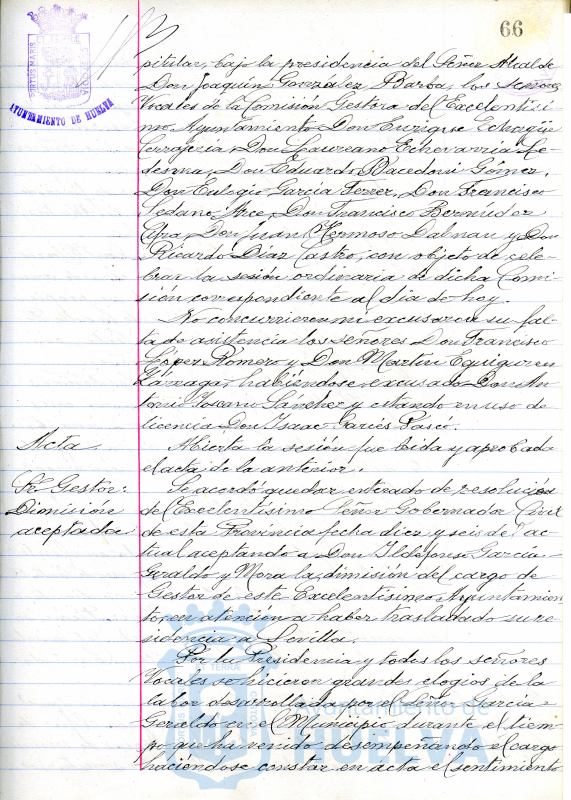 66
AYUNTAMIENTO DE HUELVA
pitular, bajo la presidencia del Señor Alcalde
Don Joaquín González Barba, los Señores
Vocales de la Comisión Gestora del Excelentísi-
mo Ayuntamiento Don Enrique Echagüe
Don Laureano Echevarria Le-
desma, Don Eduardo Bacedoni Gómez,
Don Eulogio García Ferrer, Don Francisco
Sedano Arce, Don Francisco Bermúdez
Don Juan Hermoso Dalnau y Don
Ricardo Díaz Castro, con objeto de cele-
brar la sesión ordinaria de dicha Comi-
sión correspondiente al día de hoy.
No concurrieron ni excusaron su fal-
ta de asistencia los señores Don Francisco
López Romero y Don Martín Eguiguren
Lárraga, habiéndose excusado Don An-
tonio Toscano Sánchez y estando en uso de
licencia Don Isaac Garcés Pasco.
Acta
Abierta la sesión fue leída y aprobada
el acta de la anterior.
Sr. Gestor:
Dimisión
aceptada
Se acordó quedar enterado de resolución
del Excelentísimo Señor Gobernador Civil
de esta Provincia fecha diez y seis del
actual aceptando a Don Ildefonso García
Geraldo y Mora la dimisión del cargo de
Gestor de este Excelentísimo Ayuntamien-
to, en atención a haber trasladado su re-
sidencia a Sevilla.
Por la Presidencia y todos los señores
Vocales se hicieron grandes elogios de la
labor desarrollada por el Señor García
Geraldo en el Municipio durante el tiem-
po que ha venido desempeñando el cargo
haciéndose constar en acta el sentimiento
Ayuntamiento de
HUELVA